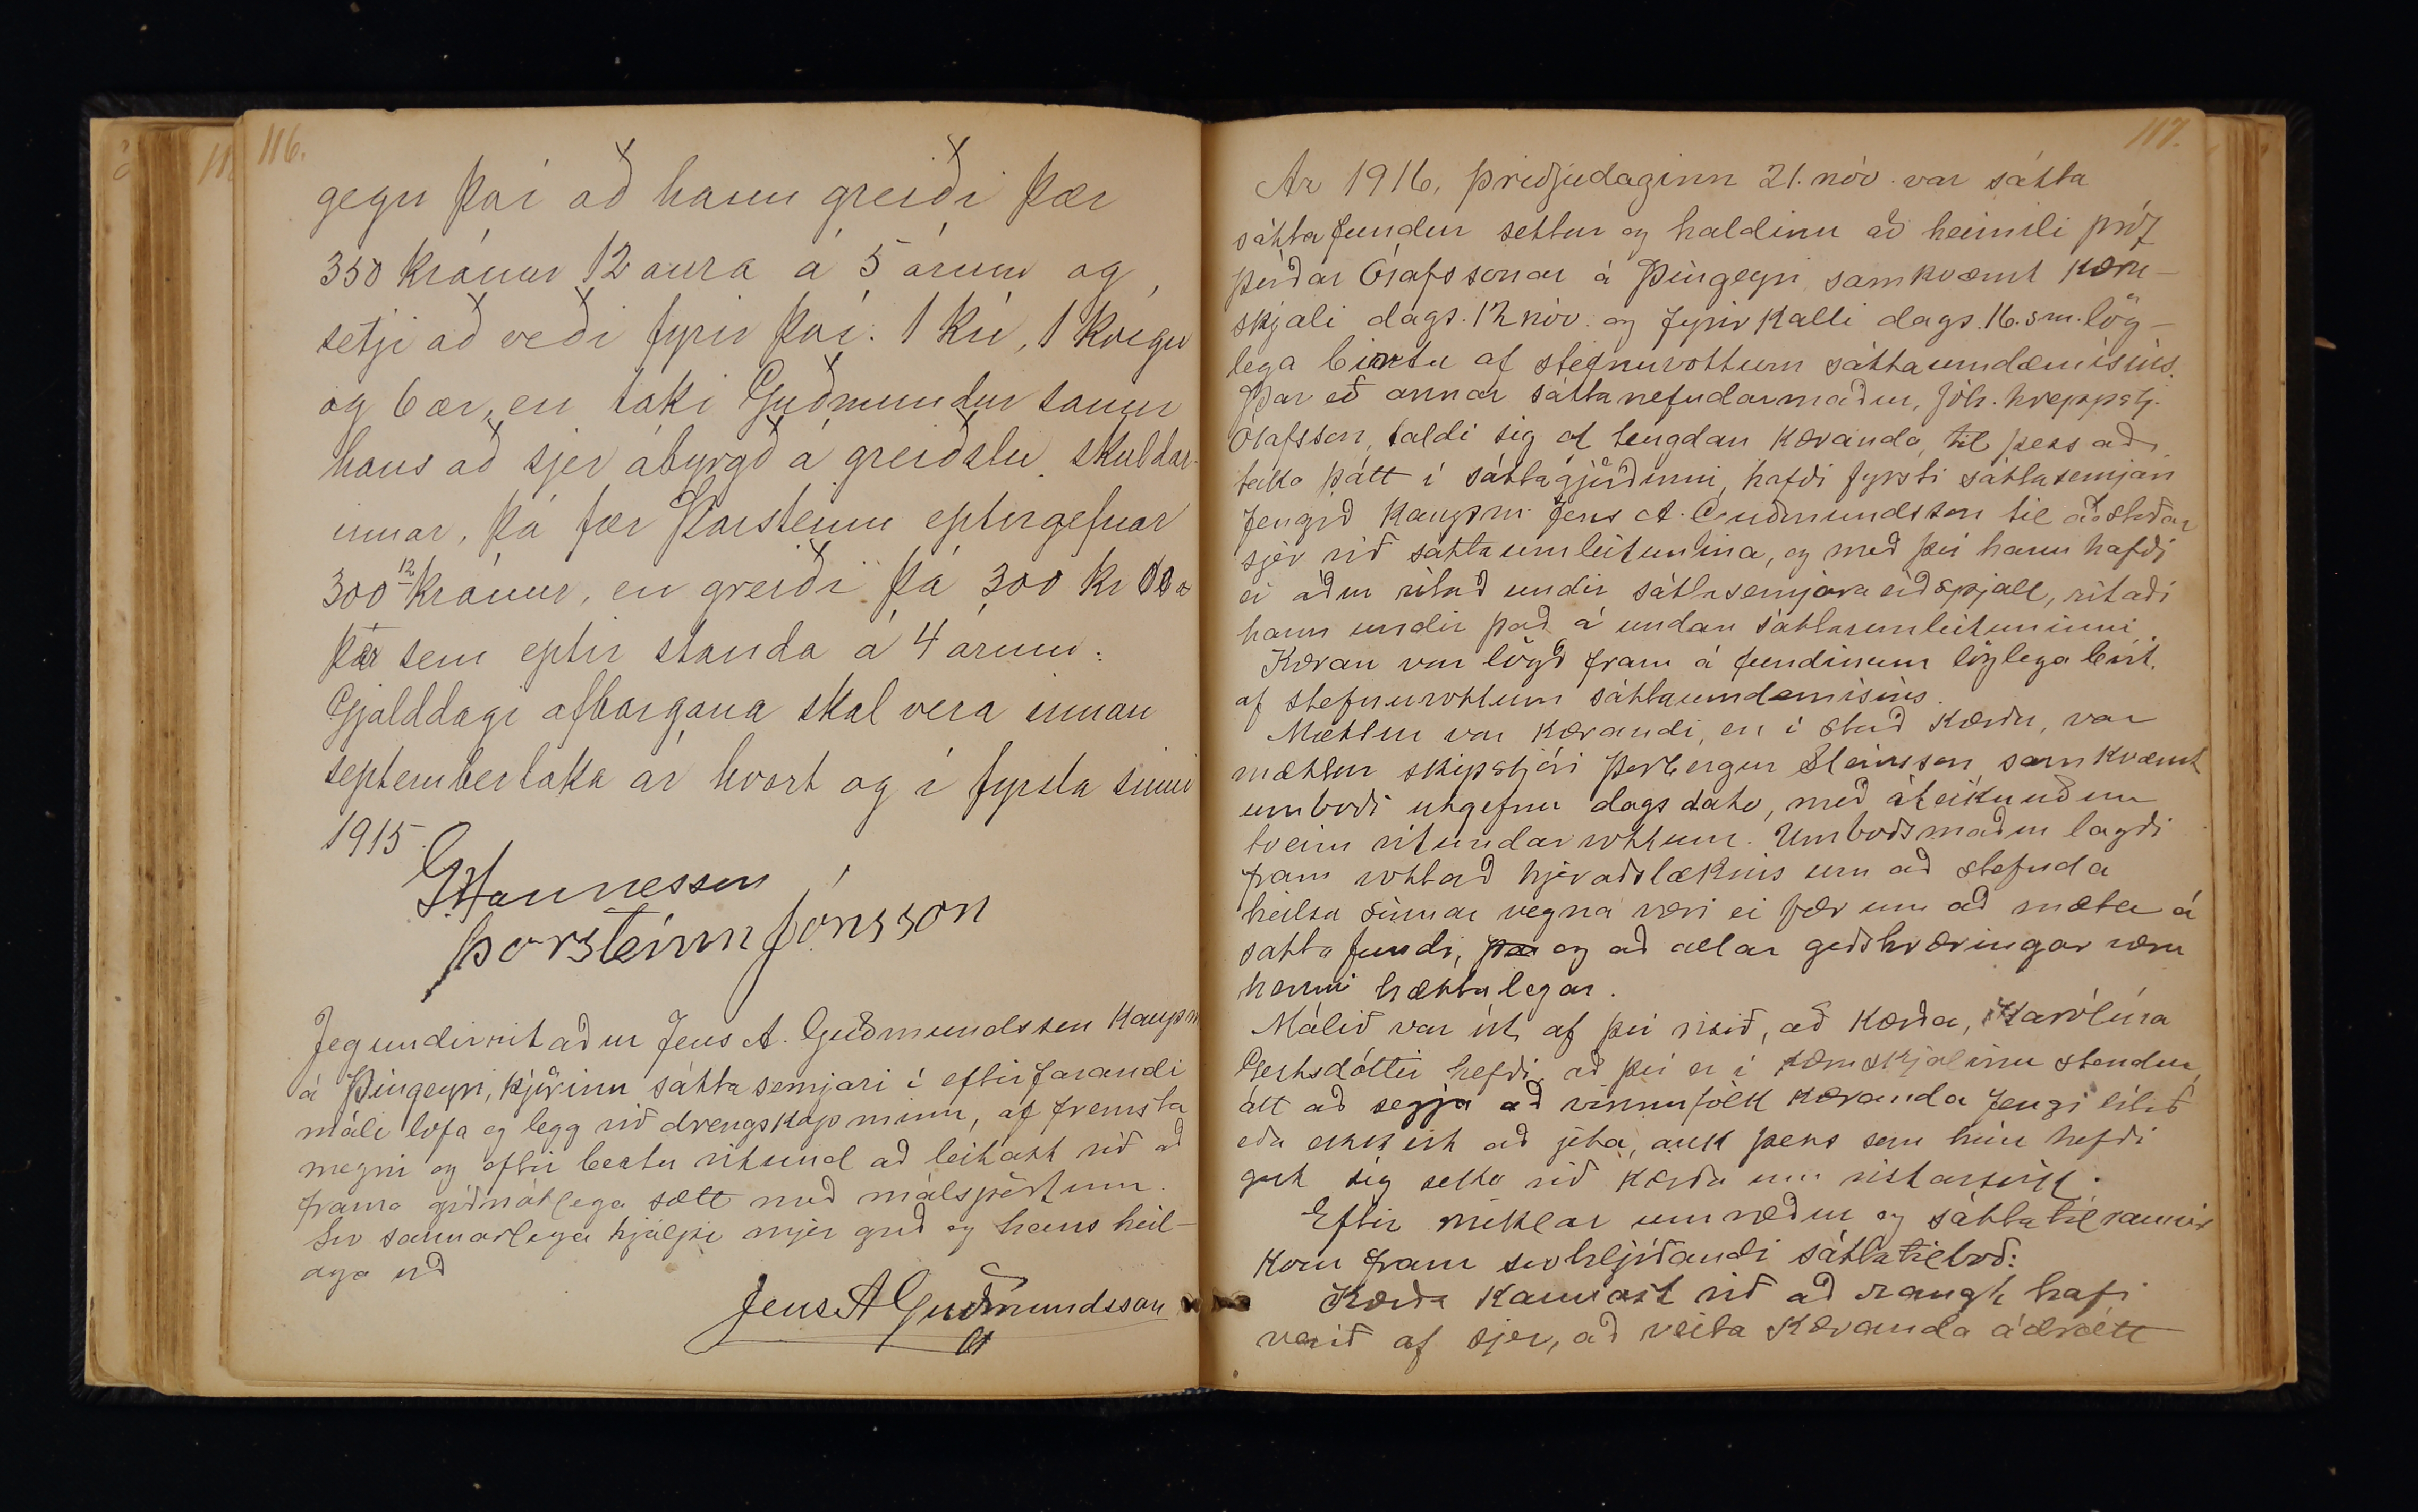 116.
gegn því að hann greiði þær
350 krónur 12 aura á 5 árum og
setji að veði fyrir því: 1 kú, 1 kvígu
og 6 ær, en taki Guðmundur sonur
hans að sjer ábyrgð á greiðslu skuldar-
innar, þá fær Þorsteinn eptirgefnar
300 12 krónur, en greiði þá 300 kr 00 a
þær sem eptir standa á 4 árum.
Gjalddagi afborgana skal vera innan
septemberloka ár hvert og í fyrsta sinni
1915.
GHannesson
Þorsteinn Jónsson
Jeg undirritaður Jens A. Guðmundsson kaupm
á Þingeyri, kjörinn sáttasemjari í eftirfarandi
máli lofa og legg við drengskap minn, af fremsta
megni og eftir bestu vitund að leitast við að
koma giðmátlega sætt með málspörtum.
Svo sannarlega hjálpi mjer guð og hans heil-
aga orð
Jens A Guðmundsson
117.
Ár 1916, þriðjudaginn 21. nóv. var sátta
sáttafundur settur og haldinn að heimili próf
Þórðar Ólafssonar á Þingeyri samkvæmt kæru-
skjali dags. 12 nóv. og fyrirkalli dags. 16. s.m. lög-
lega birtu af stefnuvottum sáttaumdæmisins.
Þar eð annar sáttanefndarmaður, Jóh. hreppstj.
Ólafsson, taldi sig of tengdan kæranda, til þess að
taka þátt í sáttagjörðinni, hafði fyrsti sáttasemjari
fengið kaupm. Jens A. Guðmundsson til aðstoðar
sjer við sáttaumleitunina, og með því hann hafði
ei áður ritað undir sáttasemjara eiðspjall, ritaði
hann undir það á undan sáttaumleituninni.
Kæran var lögð fram á fundinum löglega birt.
af stefnuvottum sáttaumdæmisins.
Mættur var kærandi, en í stað kærðu, var
mættur skipstjóri Þorbergur Steinsson samkvæmt
umboði útgefnu dags dato, með áteiknuðum
tveim vitundarvottum. Umboðsmaður lagði
fram vottað hjeraðslæknis um að stefnda
heilsu sinnar vegna væri ei fær um að mæta á
sáttafundi, og að allar geðshræringar væru
henni hættulegar.
Málið var út af því risið, að kærða, Karólína
Gertsdóttir hefði, að því er í kæruskjalinu stendur,
átt að segja að vinnufólk kæranda fengi lítið
eða ekkert að jeta, auk þess sem hún hefði
gert sig seka við kærða um vistarsvik.
Eftir miklar umræður og sáttatilraunir
kom fram svohljóðandi sáttatilboð:
Kærða kannast við að rangt hafi
verið af sjer, að veita kæranda ádrátt